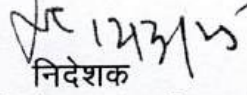 12/3/25
निदेशक